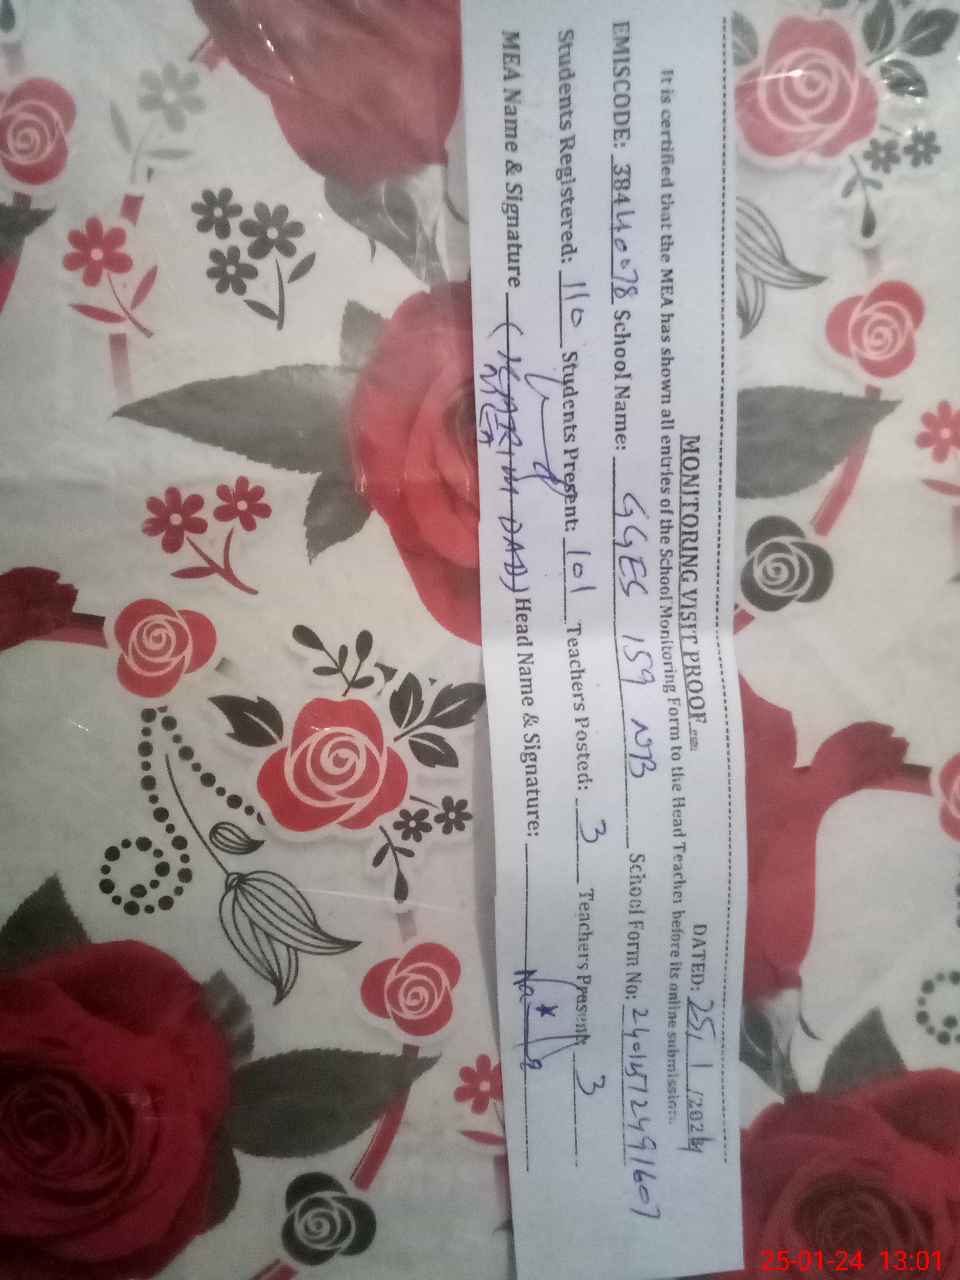 MONITORING VISIT PROOF
DATED: 25/1/2024
It is certified that the MEA has shown all entries of the School Monitoring Form to the Head Teacher before its online submission.
EMISCODE: 38440078 School Name: GGES 159 NB School Form No:
Students Registered: 110 Students Present: 101 Teachers Posted: 3 Teachers Present: 3
MEA Name & Signature (KARIM DAD) Head Name & Signature:
MEA
25-01-24 13:01